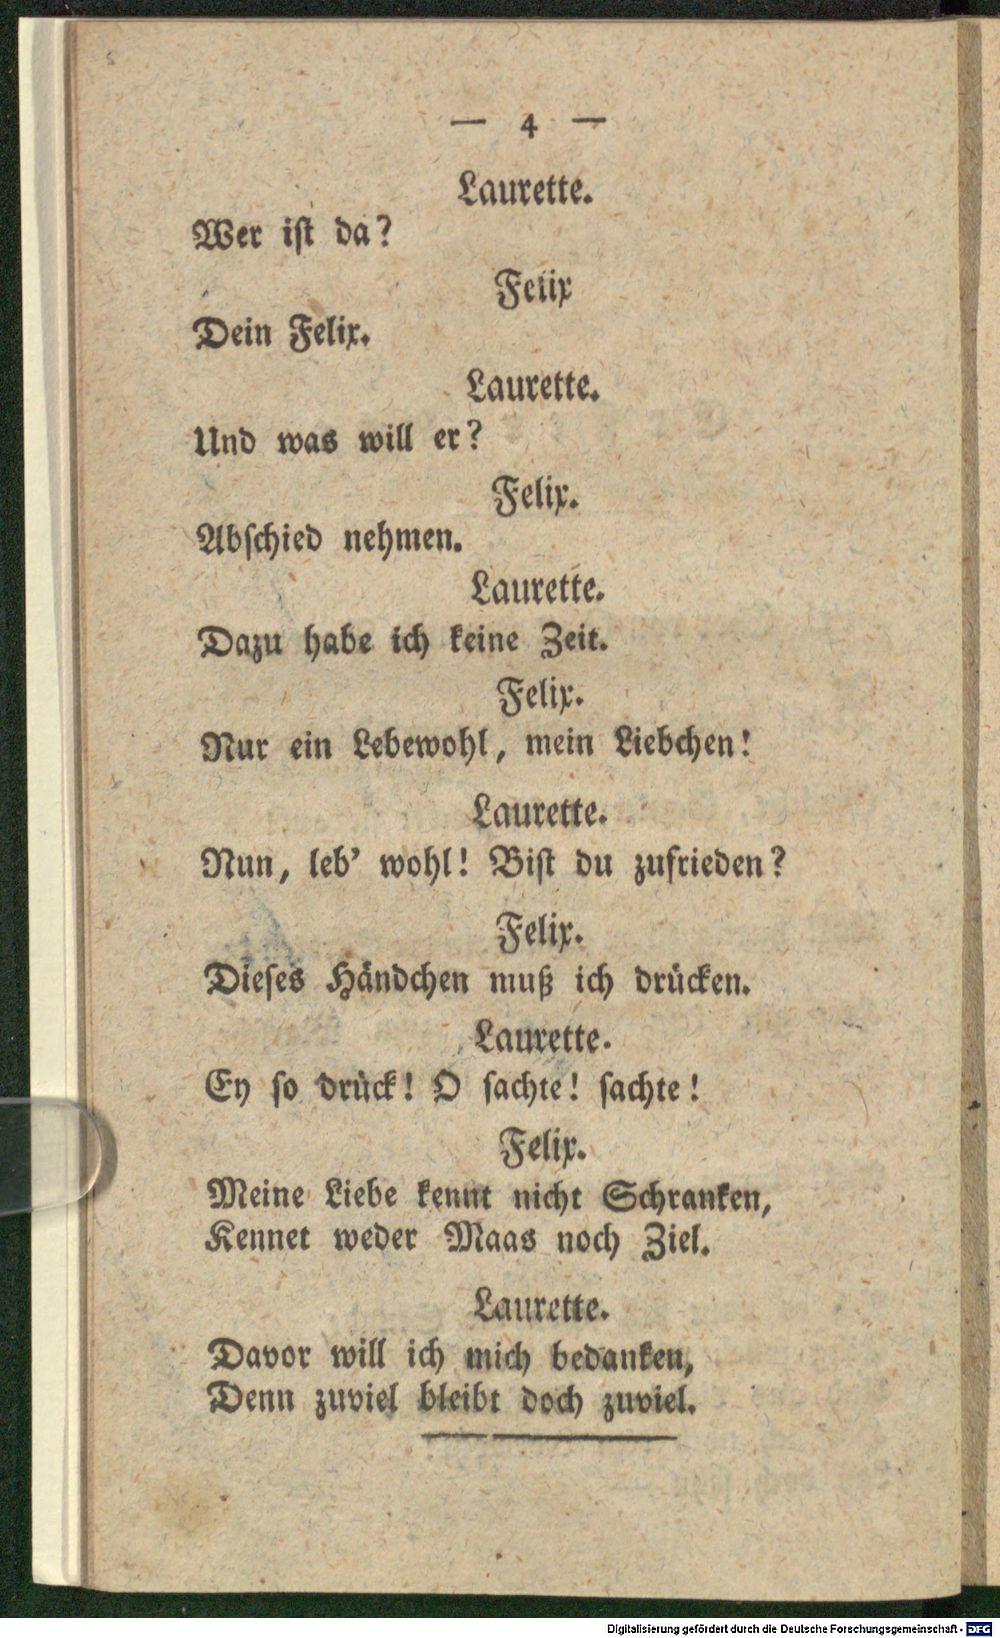 — 4 —
Laurette.
Wer ist da?
Felix
Dein Felix.
Laurette.
Und was will er?
Felix.
Abschied nehmen.
Laurette.
Dazu habe ich keine Zeit.
Felix.
Nur ein Lebewohl, mein Liebchen!
Laurette.
Nun, leb' wohl! Bist du zufrieden?
Felix.
Dieses Händchen muß ich drücken.
Laurette.
Ey so drück! O sachte! sachte!
Felix.
Meine Liebe kennt nicht Schranken,
Kennet weder Maas noch Ziel.
Laurette.
Davor will ich mich bedanken,
Denn zuviel bleibt doch zuviel.
Digitalisierung gefördert durch die Deutsche Forschungsgemeinschaft - DFG